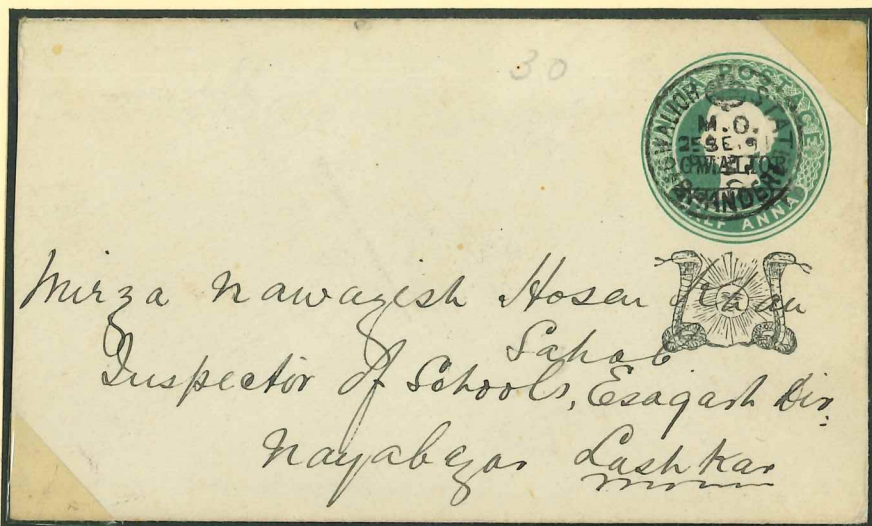 30
POSTAGE
GWALIOR STATE
M.O.
25 SE. 91
GWALIOR
BHANDER
HALF ANNA
Mirza Nawazish Hosen Khan
Sahab
Inspector of Schools, Esagarh Div.
Nayabazar Lashkar